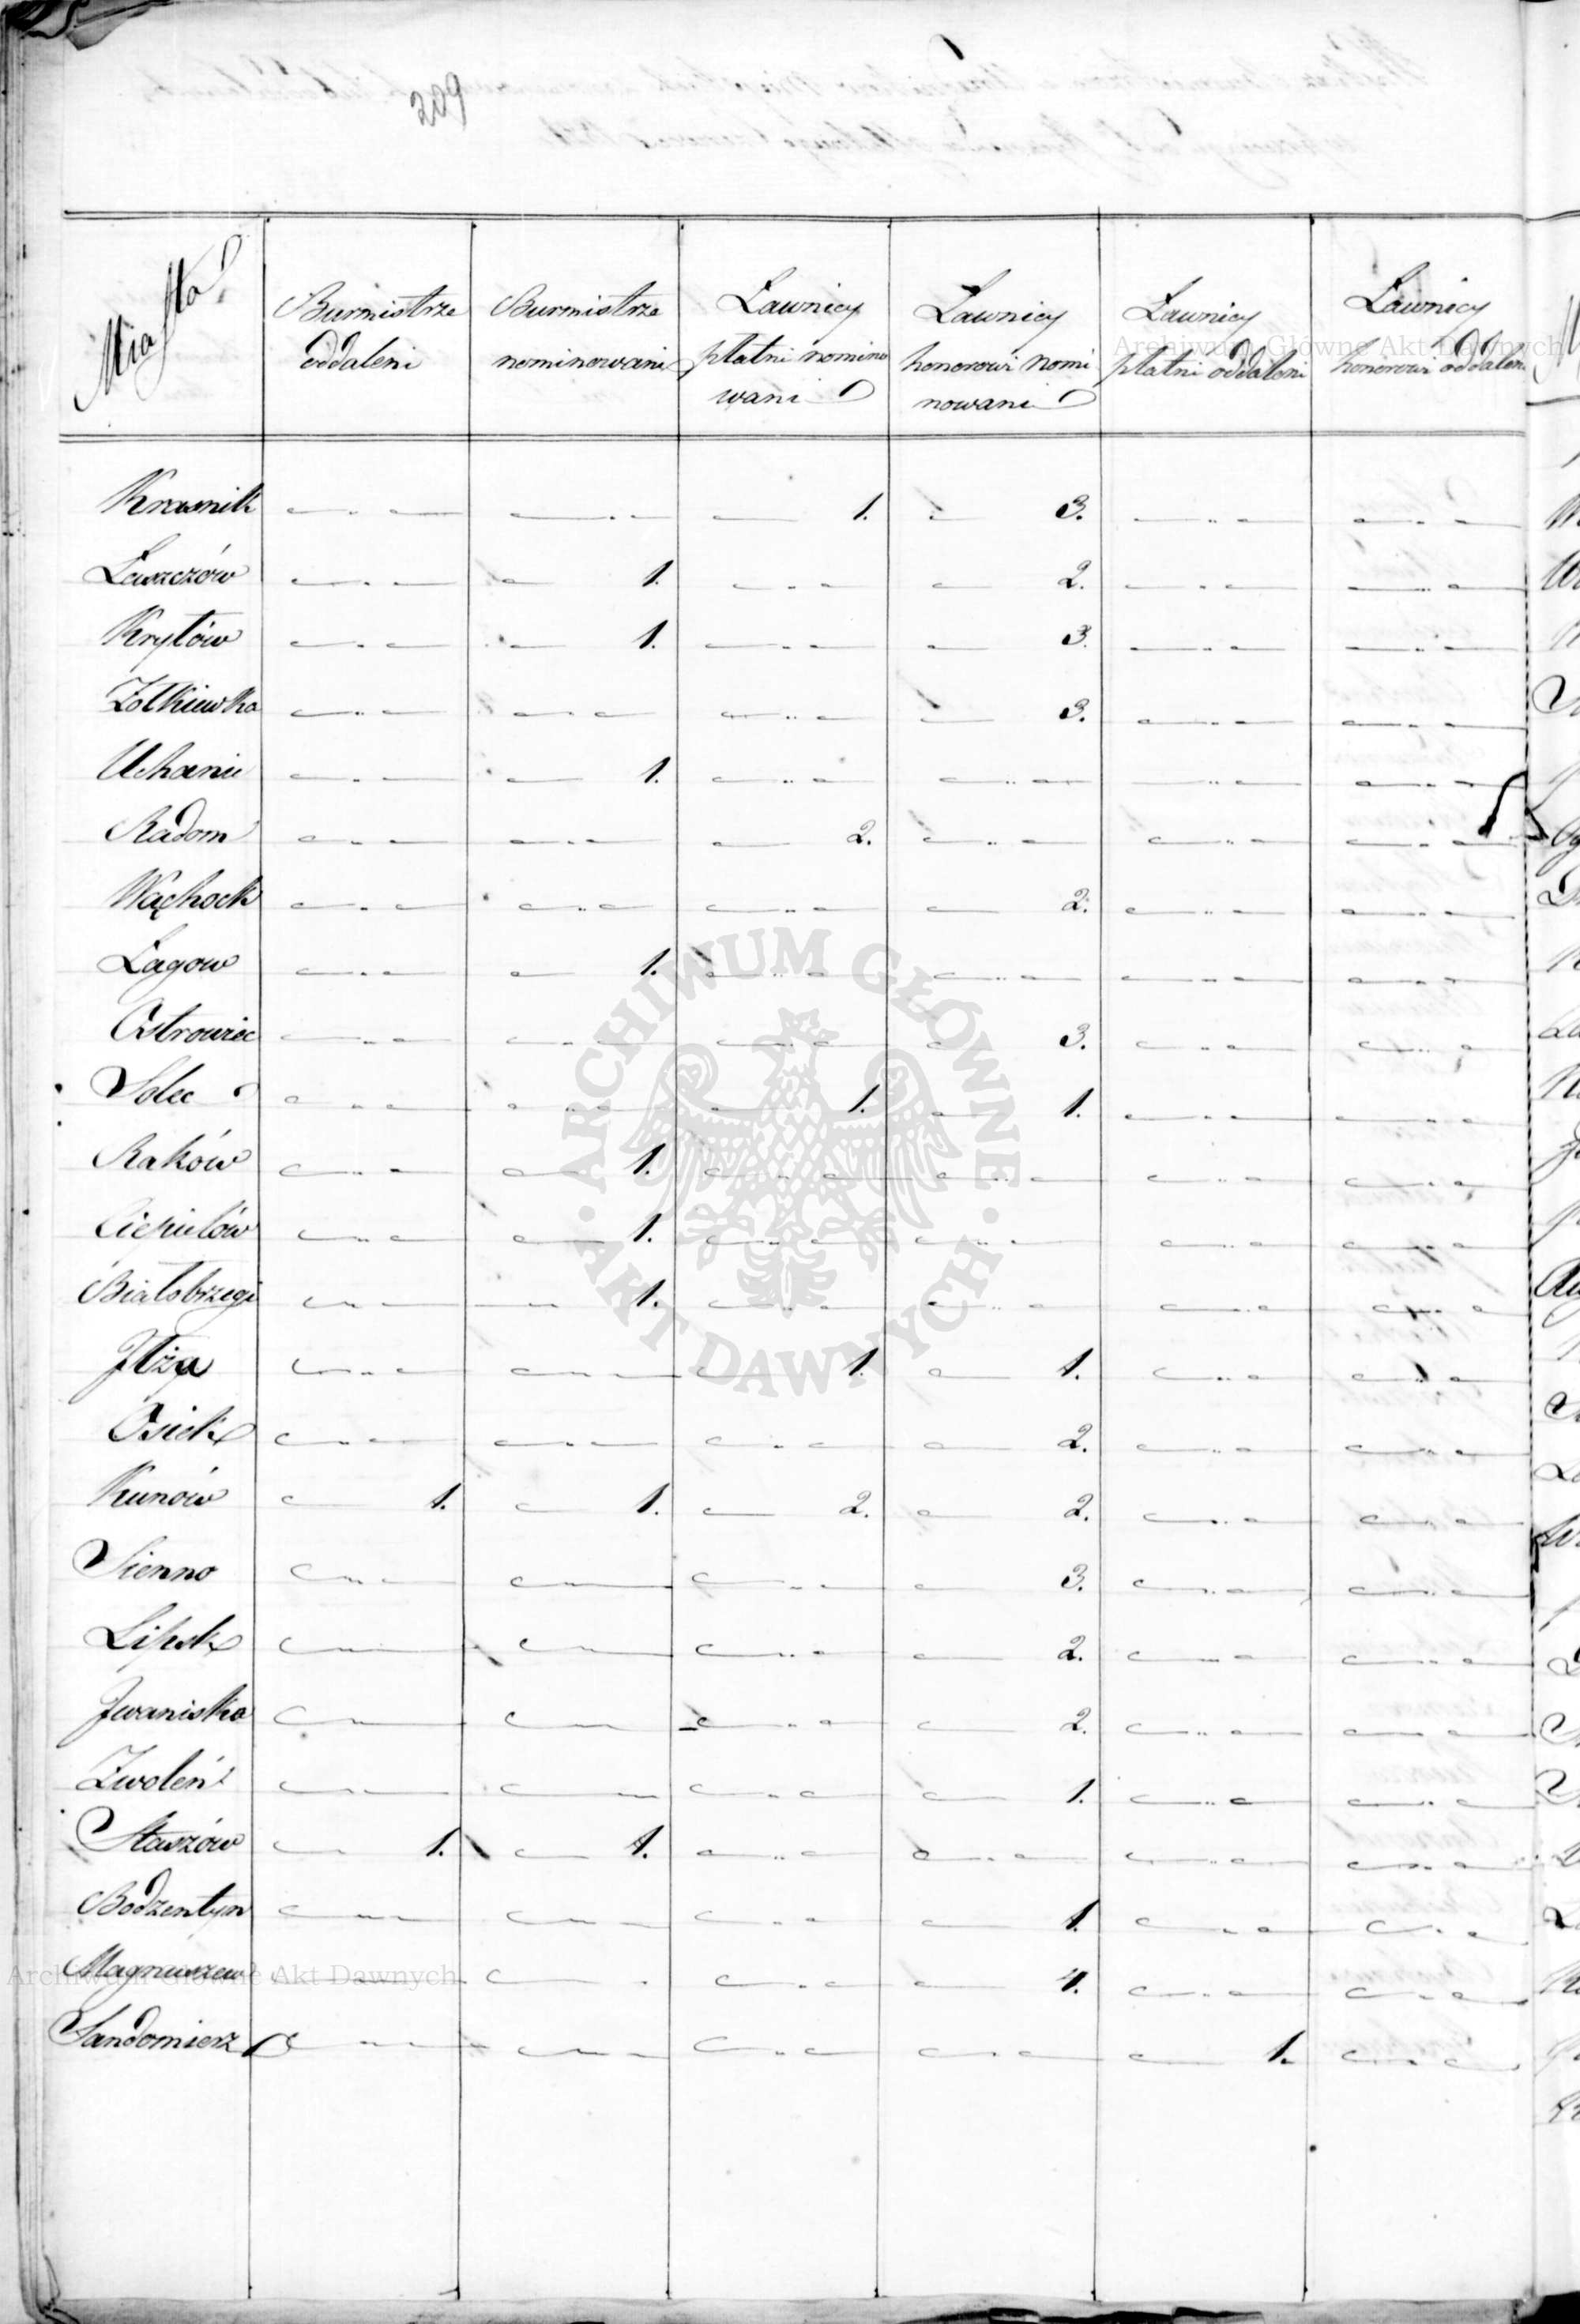 209
Miasta
Burmistrze oddaleni
Burmistrze nominowani
Ławnicy płatni nominowani
Ławnicy honorowi nominowani
Ławnicy płatni oddaleni
Ławnicy honorowi oddaleni
Krasnik — — 1. 3. — —
Łaszczów — 1. — 2. — —
Kryłów — 1. — 3. — —
Żołkiewka — — — 3. — —
Uchanie — 1. — — — —
Radom — — 2. — — —
Wąchock — — — 2. — —
Łagow — 1. — — — —
Ostrowiec — — — 3. — —
Solec — — 1. 1. — —
Raków — 1. — — — —
Ciepielów — 1. — — — —
Białobrzegi — 1. — — — —
Jłża — — 1. 1. — —
Osiek — — — 2. — —
Kunów 1. 1. 2. 2. — —
Sienno — — — 3. — —
Lipsk — — — 2. — —
Jwaniska — — — 2. — —
Zwoleń — — — 1. — —
Staszów 1. 1. — — — —
Bodzentyn — — — 1. — —
Magnuszew — — — 4. — —
Sandomierz — — — — 1. —
ARCHIWUM GŁÓWNE
AKT DAWNYCH
Archiwum Główne Akt Dawnych
Archiwum Główne Akt Dawnych